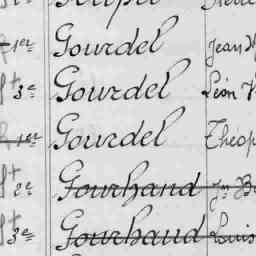 1er Gourdel Jean
3e Gourdel Léon
1er Gourdel Théop
2e Gourhand Jn B
3e Gourhaud Louis